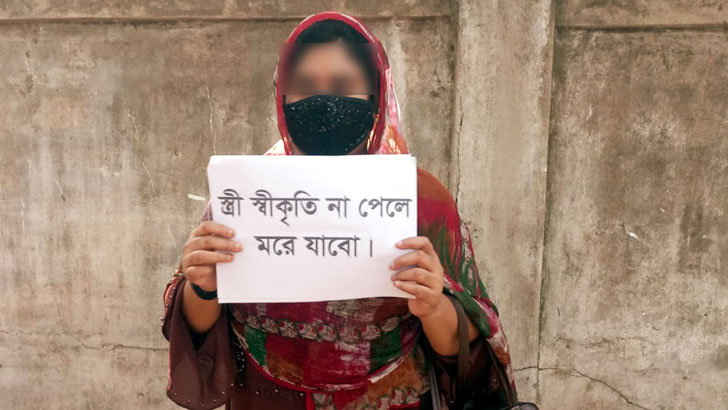 স্ত্রী স্বীকৃতি না পেলে
মরে যাবো।